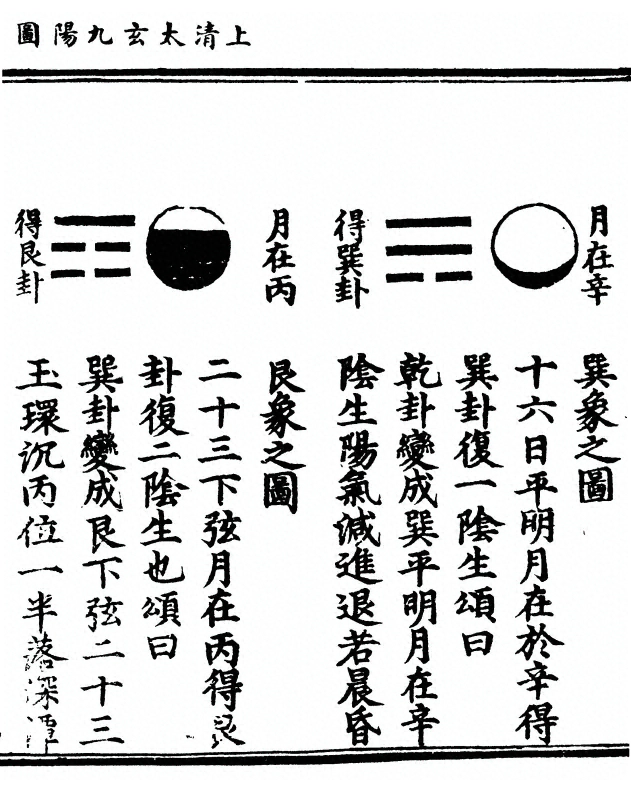 上清太玄九陽圖
月在辛
得巽卦
巽象之圖
十六日平明月在於辛得
巽卦復一陰生頌曰
乾卦變成巽平明月在辛
陰生陽氣減進退若晨昏
月在丙
得艮卦
艮象之圖
二十三下弦月在丙得艮
卦復二陰生也頌曰
巽卦變成艮下弦二十三
玉環沉丙位一半落深潭